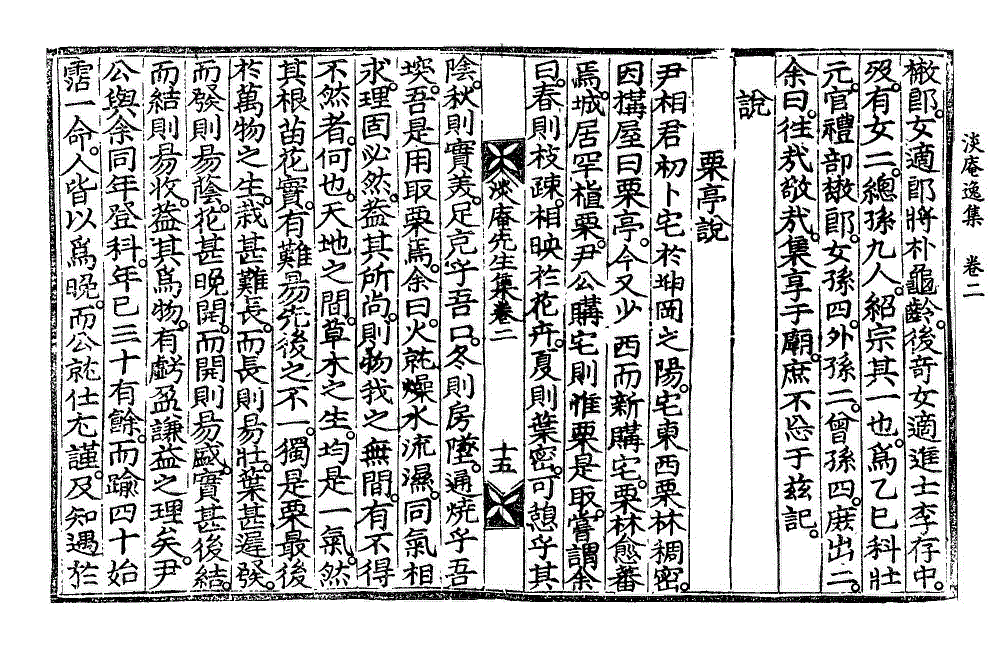 淡庵逸集 卷二
檄郎。女適郎將朴龜齡。後奇女適進士李存中。
歿。有女二。總孫九人。紹宗其一也。爲乙巳科壯
元。官禮部散郎。女孫四。外孫二。曾孫四。庶出二。
余曰。往哉敬哉。集享于廟。庶不忝于玆記。
說
栗亭說
尹相君初卜宅於坤岡之陽。宅東西栗林稠密。
因搆屋曰栗亭。今又少西而新購宅。栗林愈審
焉。城居罕植栗。尹公購宅則惟栗是取。嘗謂余
曰。春則枝疎。相映於花卉。夏則葉密。可憩乎其
淡庵先生集卷二 十五
陰。秋則實美。足克乎吾口。冬則房墜。通燒乎吾
堗。吾是用取栗焉。余曰。火就燥水流濕。同氣相
求。理固必然。盖其所尙。則物我之無間。有不得
不然者。何也。天地之間。草木之生。均是一氣。然
其根苗花實。有難易先後之不一。獨是栗最後
於萬物之生。栽甚難長。而長則易壯。葉甚遲發。
而發則易陰。花甚晚開。而開則易盛。實甚後結。
而結則易收。益其爲物。有虧盈謙益之理矣。尹
公與余同年登科。年已三十有餘。而踰四十始
霑一命。人皆以爲晚。而公就仕尤謹。及知遇於